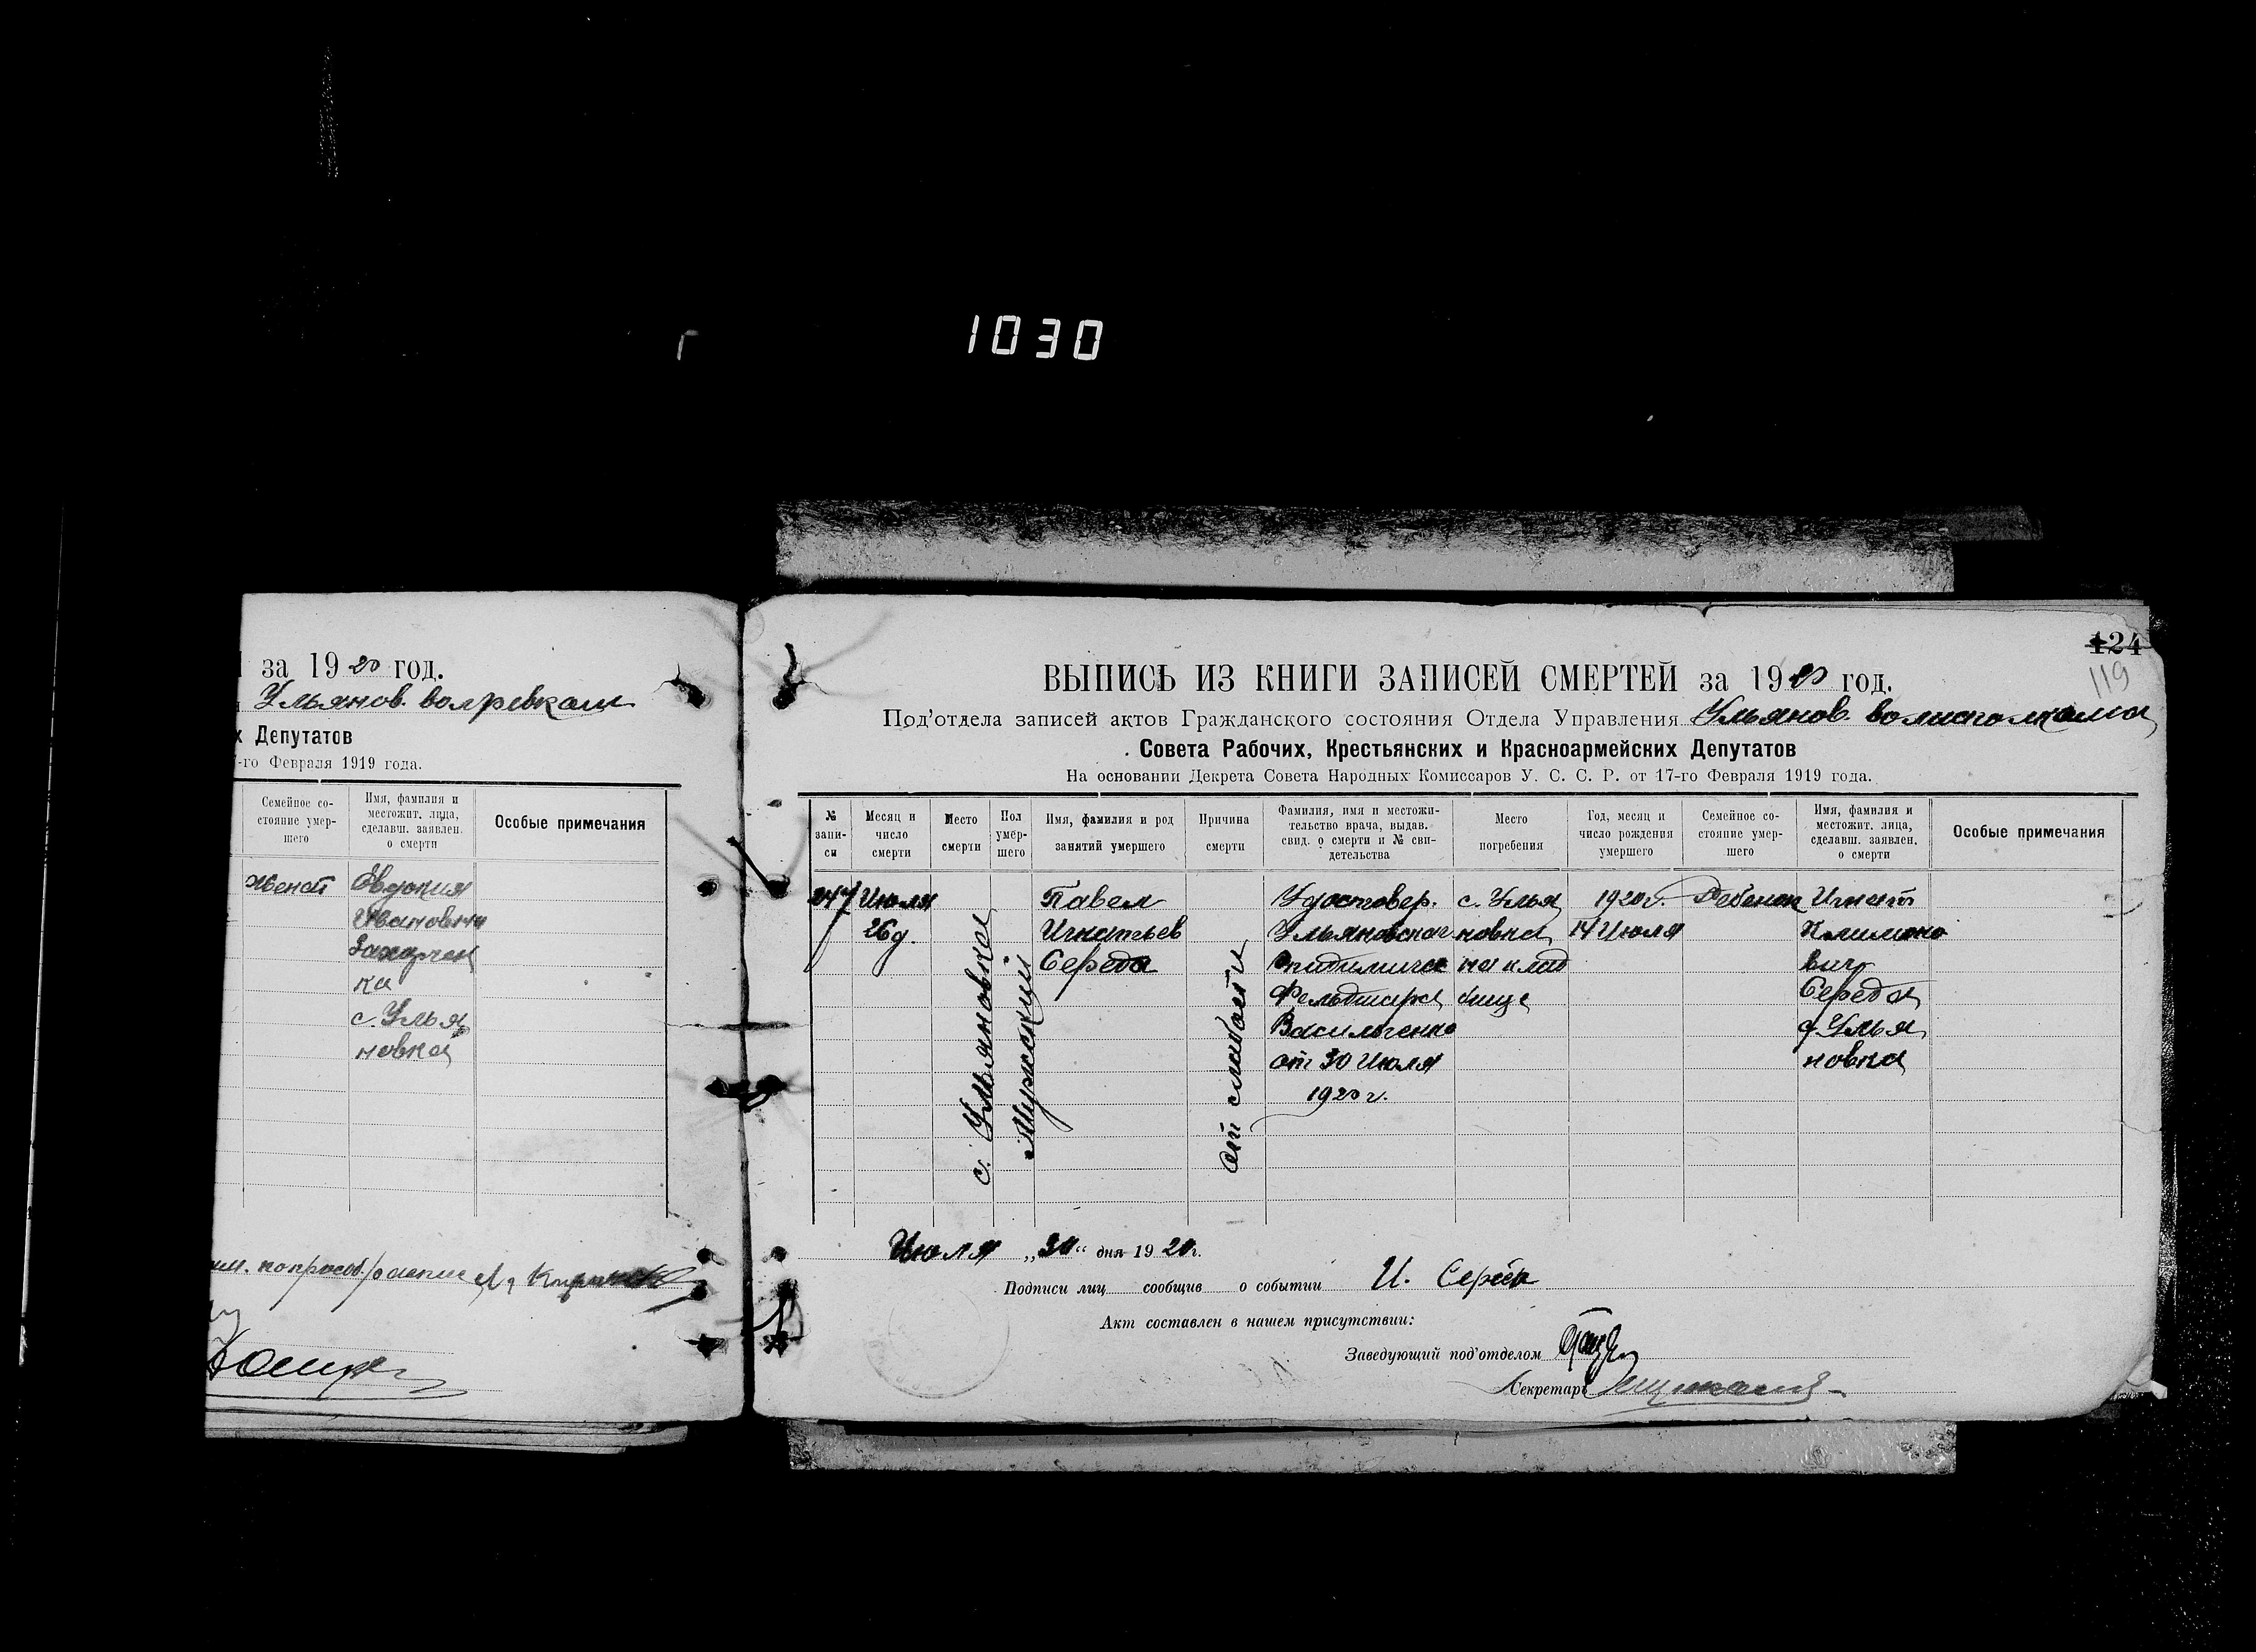 1030
за 1920 год.
Ульянов. волревком
Депутатов
-го Февраля 1919 года.
Семейное со-
стояние умер-
шего
Имя, фамилия и
местожит. лица,
сделавш. заявлен.
о смерти
Особые примечания
женат
Евдокия
Ивановна
Захарчен
ка
с. Улья
новка
124
119
ВЫПИСЬ ИЗ КНИГИ ЗАПИСЕЙ СМЕРТЕЙ за 1920 год.
Под'отдела записей актов Гражданского состояния Отдела Управления Ульянов. волисполкома
Совета Рабочих, Крестьянских и Красноармейских Депутатов
На основании Декрета Совета Народных Комиссаров У. С. С. Р. от 17-го Февраля 1919 года.
№
запи-
си
Месяц и
число
смерти
Место
смерти
Пол
умер-
шего
Имя, фамилия и род
занятий умершего
Причина
смерти
Фамилия, имя и местожи-
тельство врача, выдав.
свид. о смерти и № сви-
детельства
Место
погребения
Год, месяц и
число рождения
умершего
Семейное со-
стояние умер-
шего
Имя, фамилия и
местожит. лица,
сделавш. заявлен.
о смерти
Особые примечания
247
Июля
26д.
с. Ульяновка
Мужской
Павел
Игнатьев
Середа
от слабости
Удостовер.
Ульяновског
Фельдшера
Васильченко
от 30 Июля
1920 г.
с. Улья
новка
на клад
бище
1920 г.
14 Июля
Ребенок
Игнат
Климено
вич
Середа
с. Улья
новка
Июля „30“ дня 1920г.
Подписи лиц сообщив о событии И. Середа
Акт составлен в нашем присутствии:
Заведующий под'отделом
Секретарь